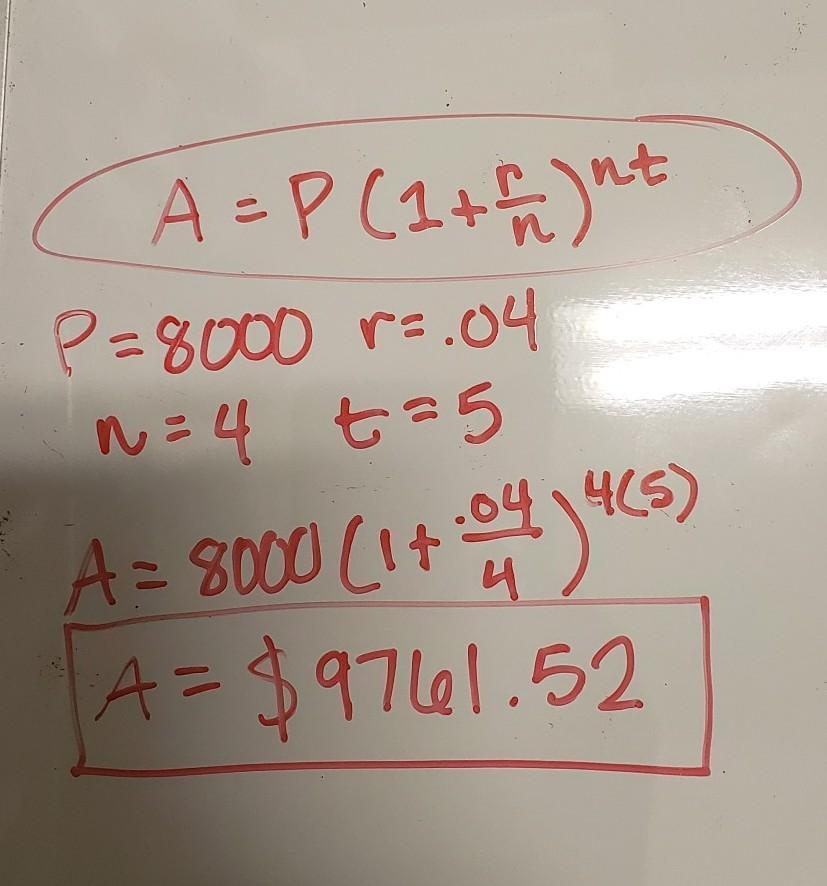 A = P(1+r/n)^nt
P=8000 r=.04
n=4 t=5
A= 8000(1+.04/4)^4(5)
A= $9761.52